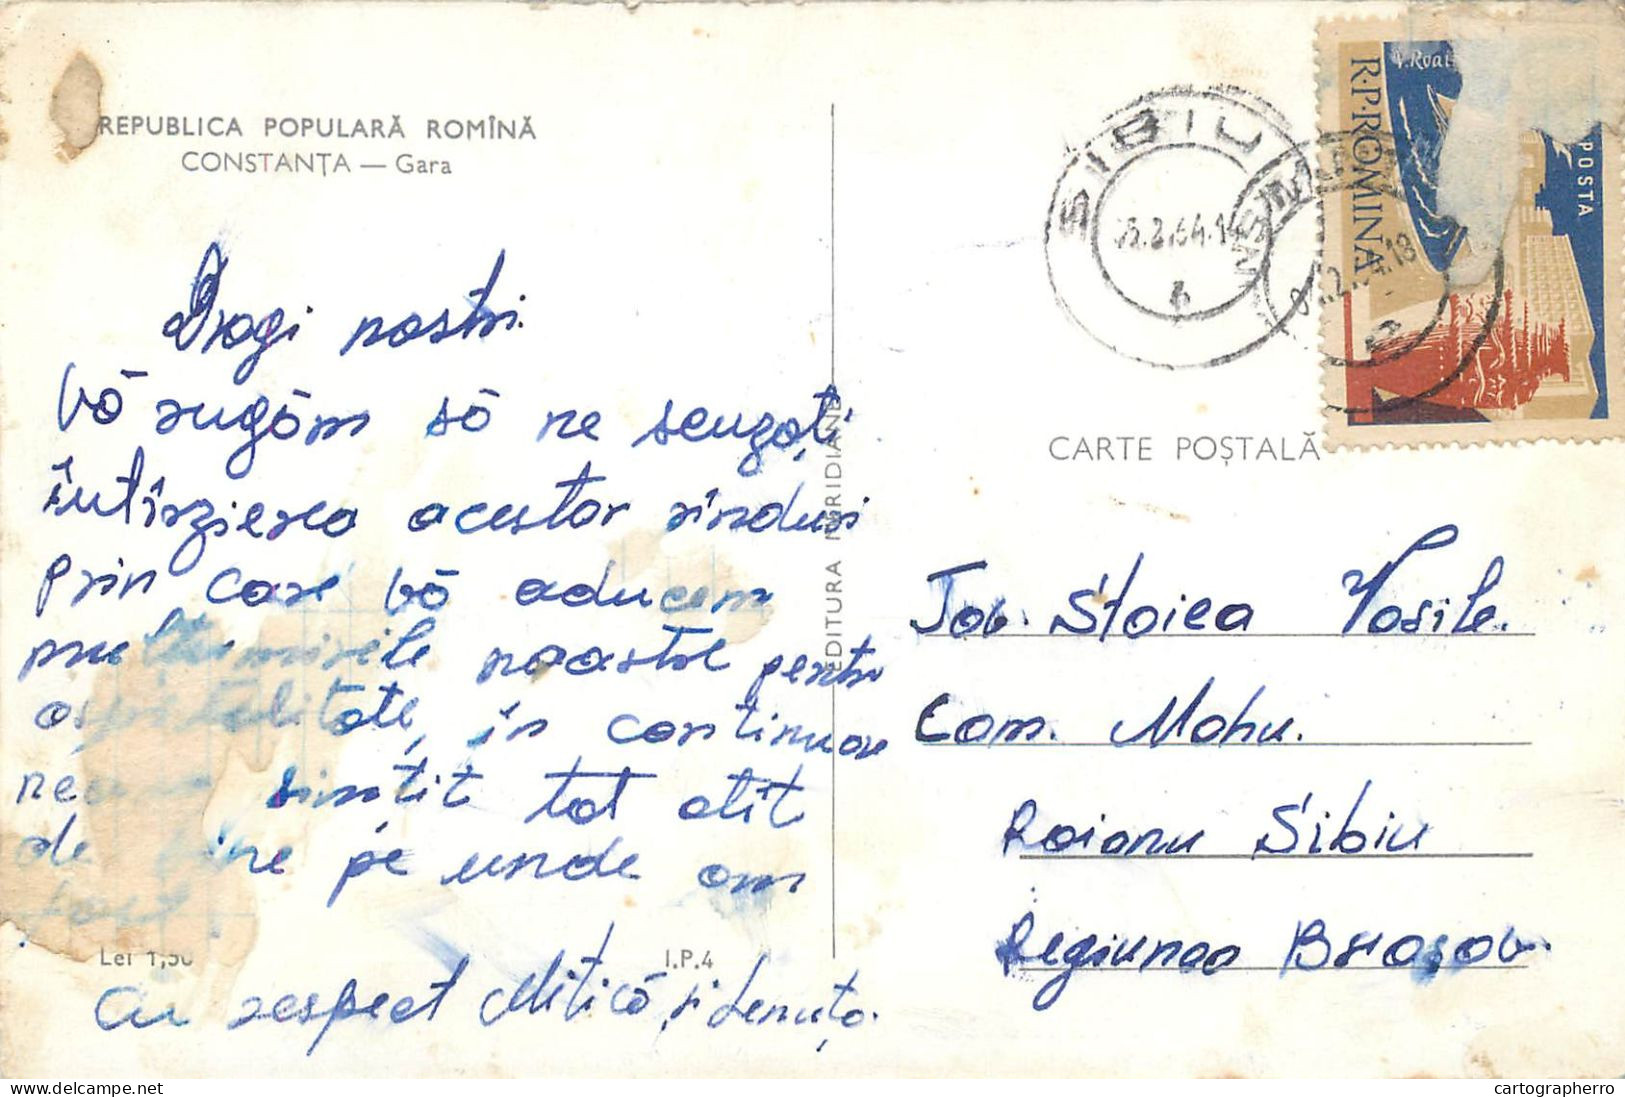 REPUBLICA POPULARĂ ROMÎNĂ
CONSTANȚA — Gara
Dragi noștri.
Vă rugăm să ne scuzați
întîrzierea acestor rînduri
prin care vă aducem
mulțumirile noastre pentru
ospitalitate, în continuare
ne am simțit tot atît
de bine pe unde am
fost.
Cu respect Mitică, și Lenuța.
Lei 1,50
I.P.4
EDITURA MERIDIANE
SIBIU
R.P. ROMINA
V. Roaită
POSTA
CARTE POȘTALĂ
Tov. Stoica Vasile.
Com. Mohu.
Raionu Sibiu
Regiunea Brașov.
cartographerro